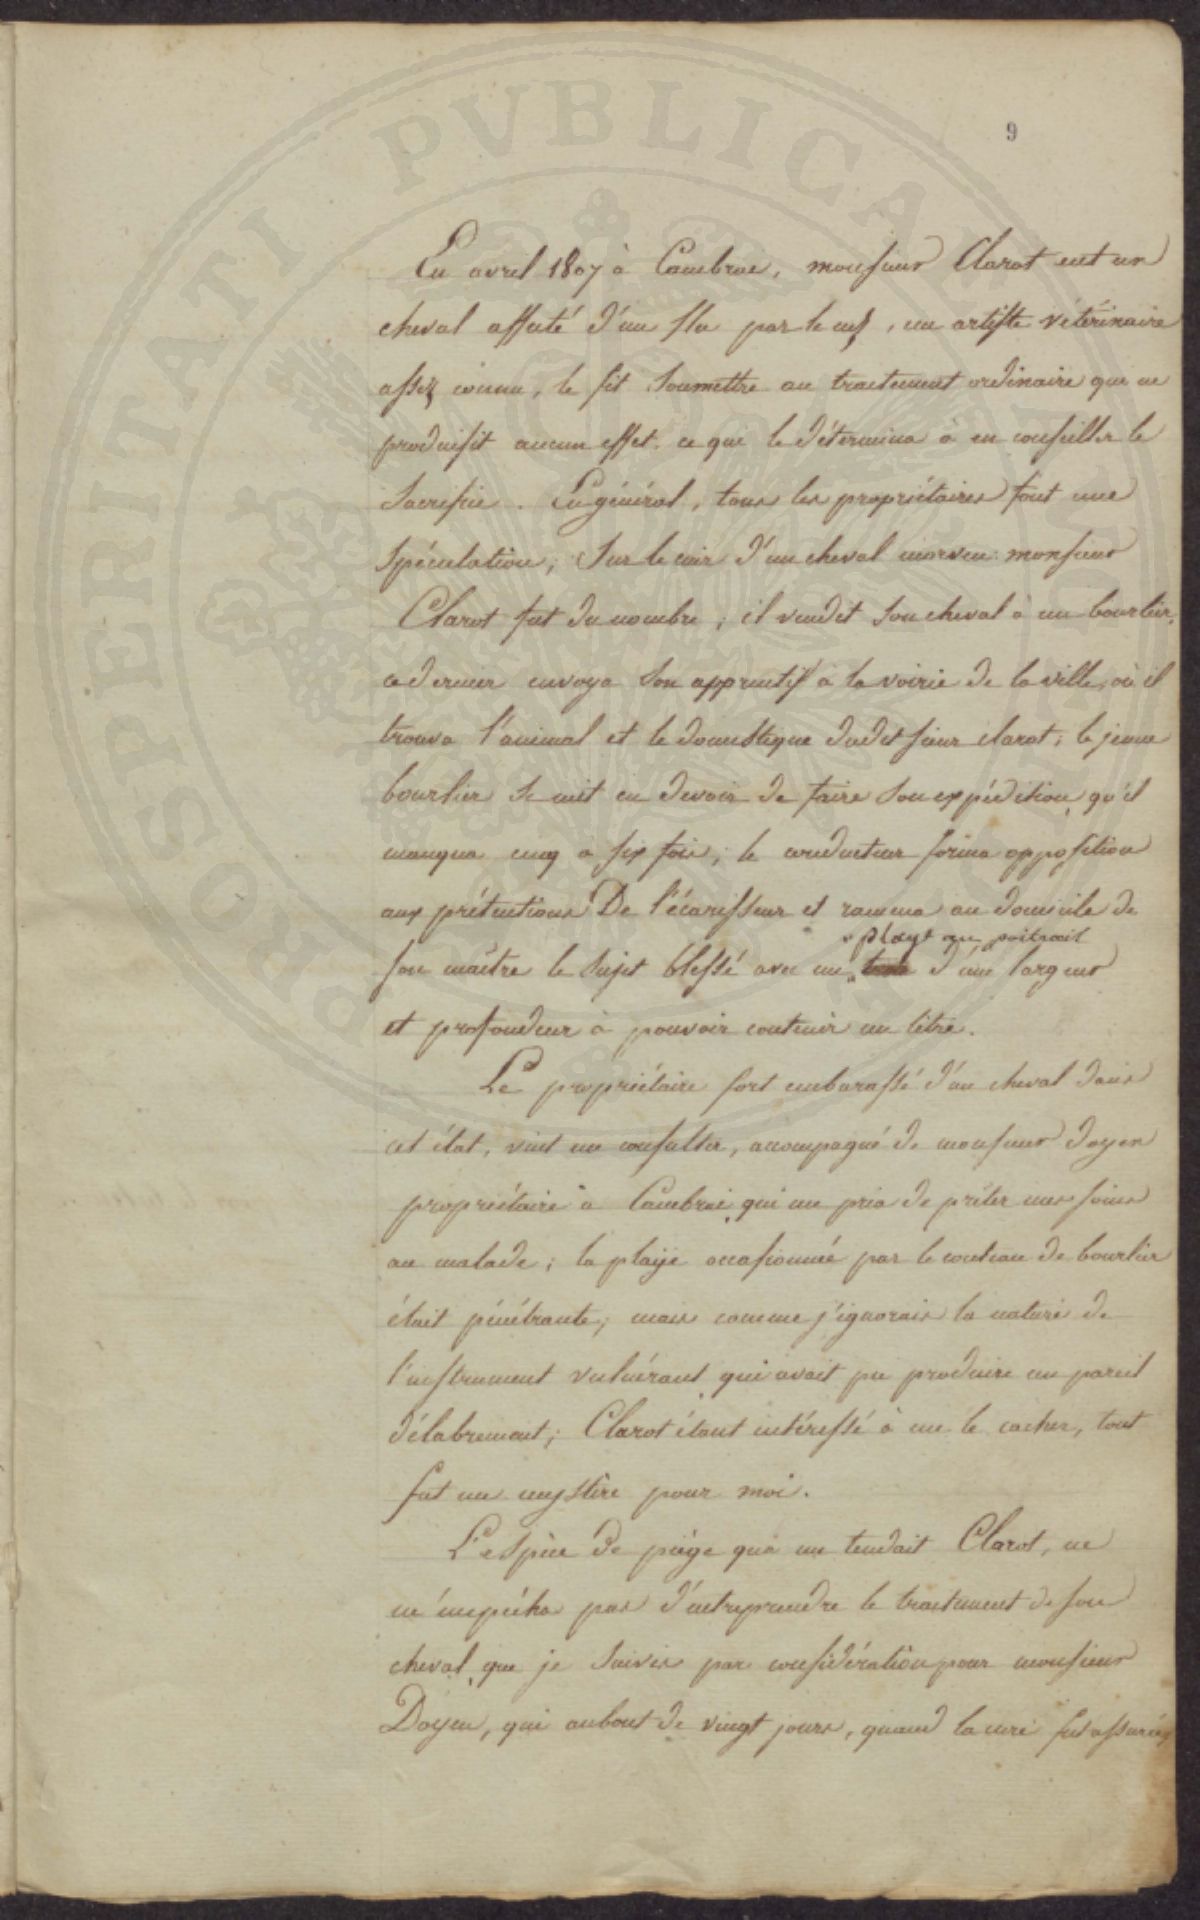 9
En avril 1807 à Cambrai, monsieur Clarot eut un
cheval affecté d'un flu par le nez, un artiste vétérinaire
assez connu, le fit soumettre au traitement ordinaire qui ne
produisit aucun effet. ce qui le détermina à en conseiller le
Sacrifice. En général, tous les propriétaires font une
spéculation, Sur le cuir d'un cheval morveu: monsieur
Clarot fut du nombre; il vendit son cheval à un bourlier,
ce dernier envoya son apprentif à la voirie de la ville, où il
trouva l'animal et le domestique dudit sieur clarot; le jeune
bourlier se mit en devoir de faire son expédition, qu'il
manqua cinq à six fois; le conducteur forma opposition
aux prétentions De l'écarisseur et ramena au domicile de
playe au poitrail
son maître le sujet blessé avec une d'une largeur
et profondeur à pouvoir contenir un litre.
Le propriétaire fort embarassé d'un cheval dans
cet état, vint me consulter, accompagné de monsieur doyen
propriétaire à Cambrai, qui me pria de prêter mes soins
au malade; la playe occasionnée par le couteau de bourlier
était pénétrante; mais comme j'ignorais la nature de
l'instrument vulnérant, qui avait pu produire un pareil
délabrement; Clarot étant intéressé à me le cacher, tout
fut un mystère pour moi.
L'espèce De piège que me tendait Clarot, ne
m'empêcha pas d'entreprendre le traitement de son
cheval, que je suivis par considération pour monsieur
Doyen, qui aubout de vingt jours, quand la cure fut assurée,
PROSPERITATI PVBLICAE